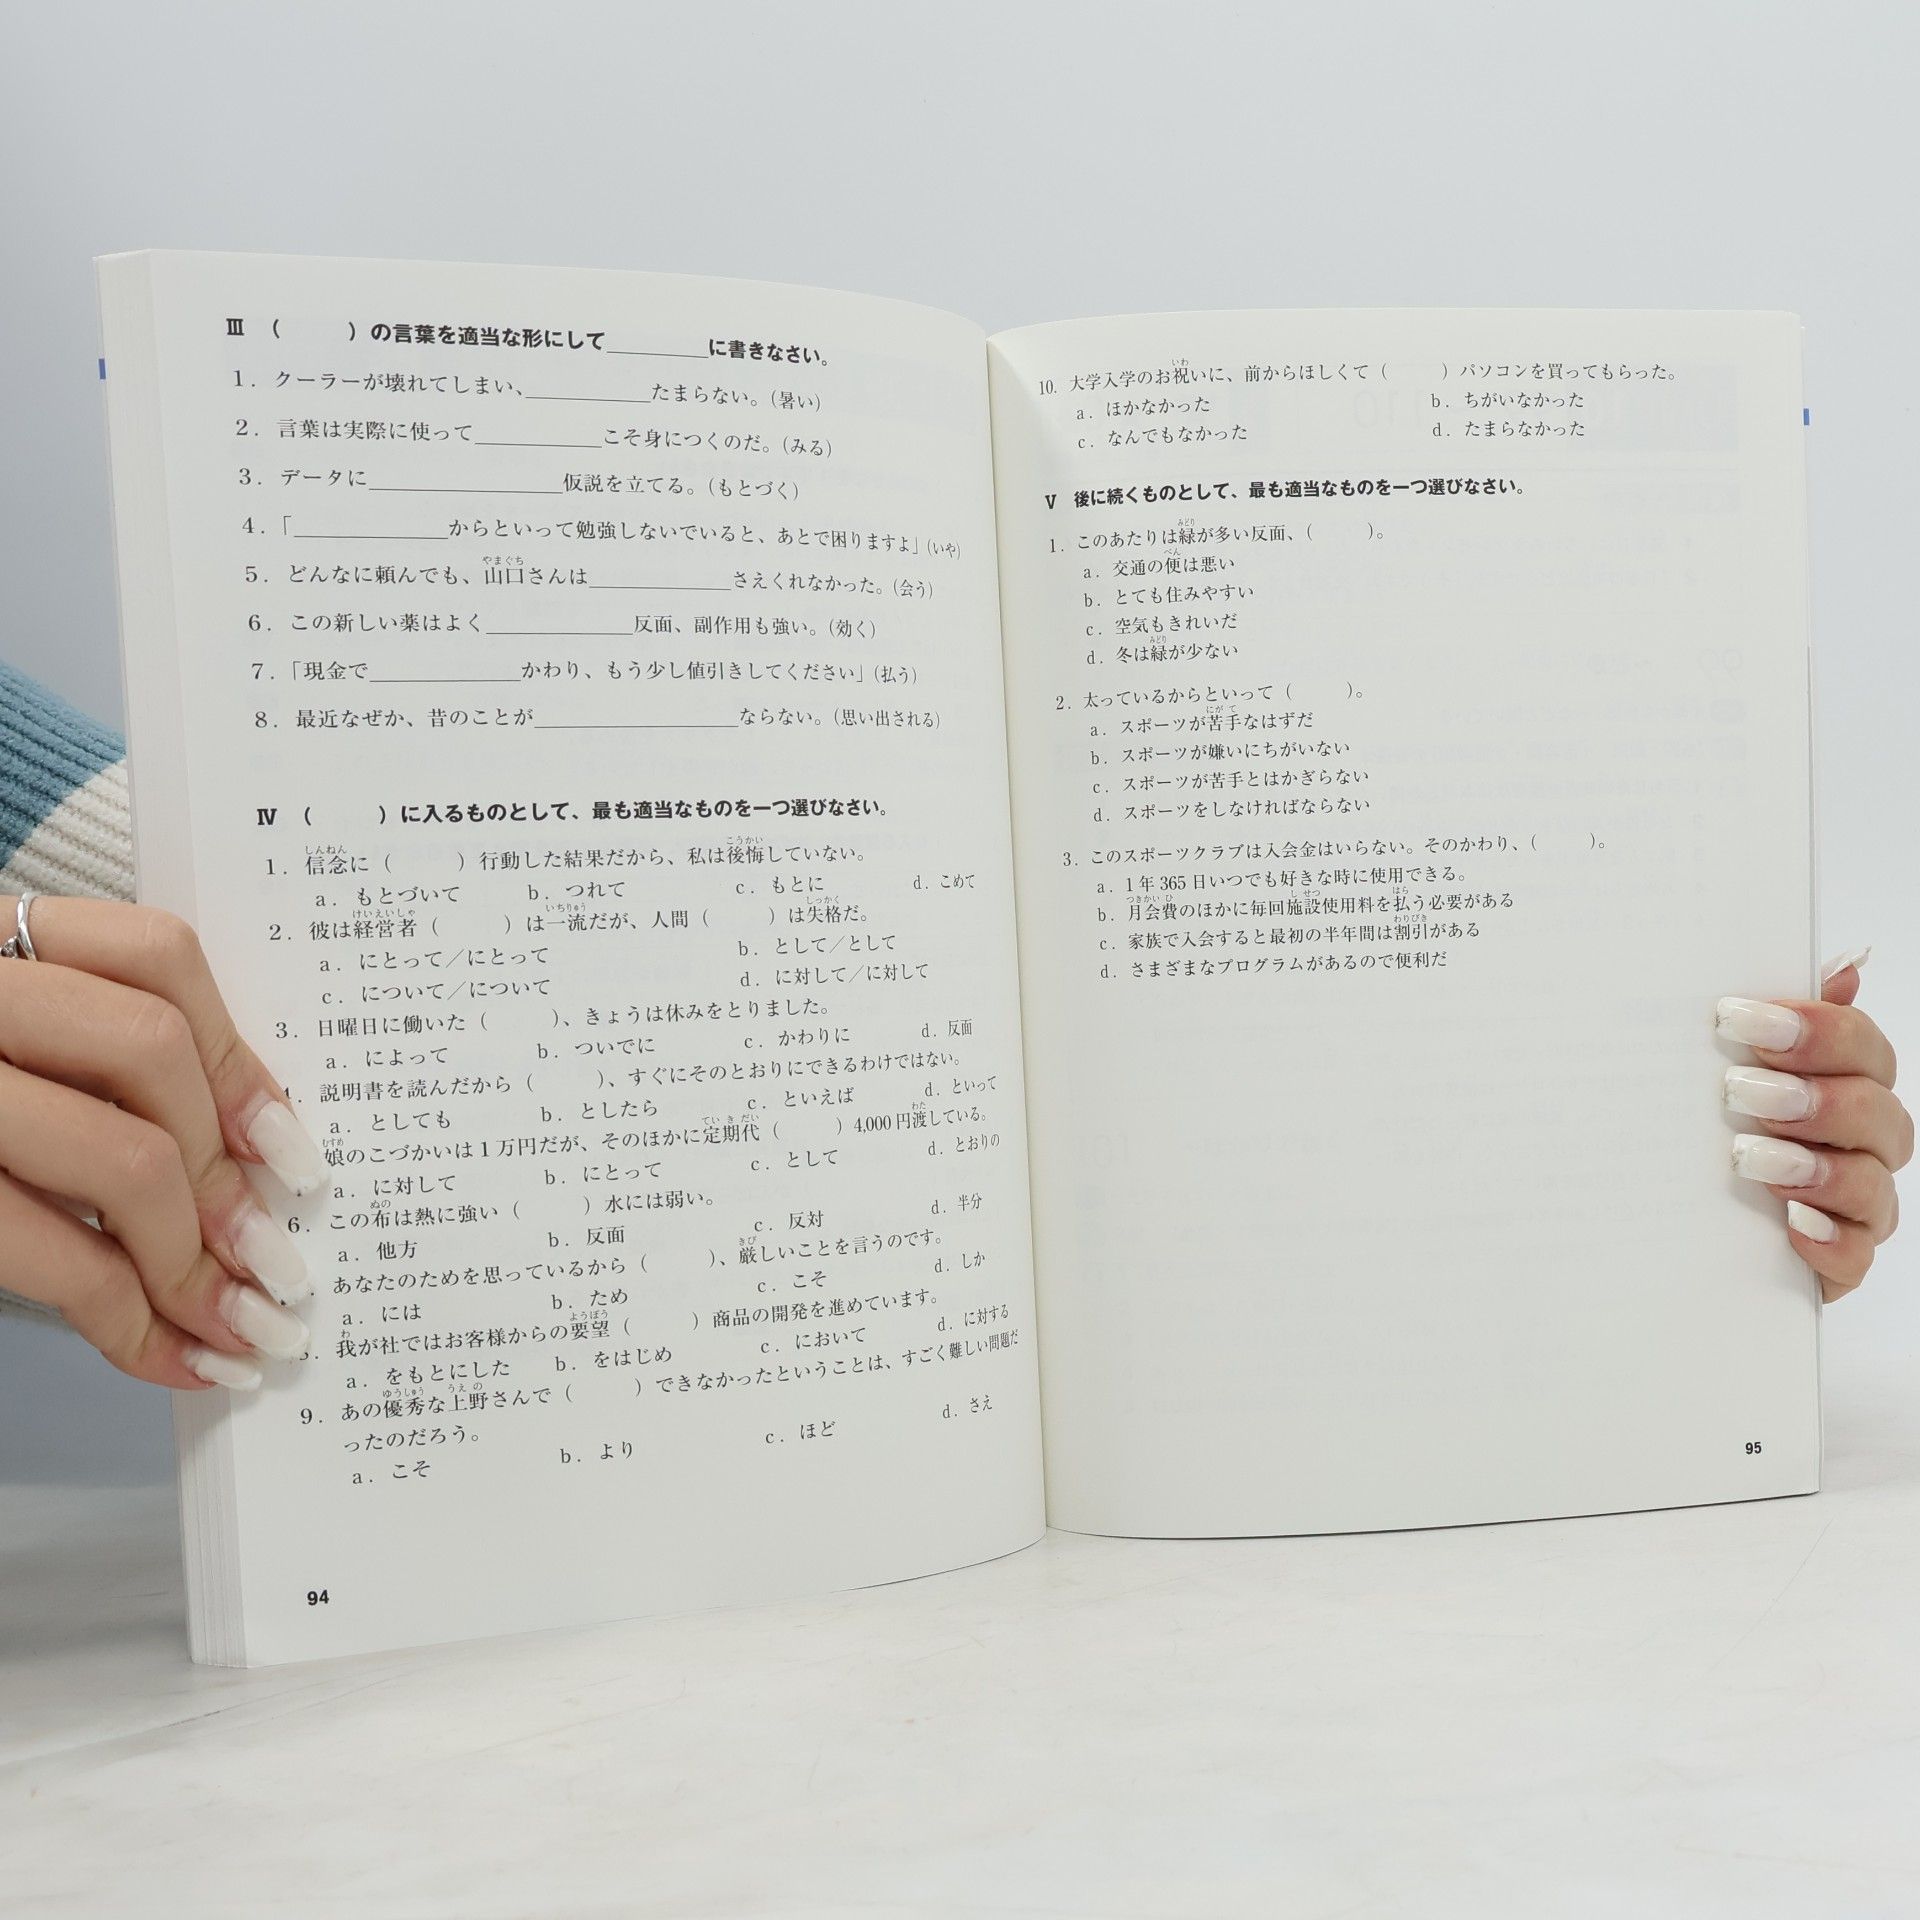 III （　　　）の言葉を適当な形にして＿＿＿＿＿に書きなさい。
1．クーラーが壊れてしまい、＿＿＿＿＿たまらない。（暑い）
2．言葉は実際に使って＿＿＿＿＿こそ身につくのだ。（みる）
3．データに＿＿＿＿＿仮説を立てる。（もとづく）
4．「＿＿＿＿＿からといって勉強しないでいると、あとで困りますよ」（いや）
やまぐち
5．どんなに頼んでも、山口さんは＿＿＿＿＿さえくれなかった。（会う）
6．この新しい薬はよく＿＿＿＿＿反面、副作用も強い。（効く）
7．「現金で＿＿＿＿＿かわり、もう少し値引きしてください」（払う）
8．最近なぜか、昔のことが＿＿＿＿＿ならない。（思い出される）
IV （　　　）に入るものとして、最も適当なものを一つ選びなさい。
しんねん　こうかい
1．信念に（　　　）行動した結果だから、私は後悔していない。
a．もとづいて　b．つれて　c．もとに　d．こめて
けいえいしゃ　いちりゅう　しっかく
2．彼は経営者（　　　）は一流だが、人間（　　　）は失格だ。
a．にとって／にとって　b．として／として
c．について／について　d．に対して／に対して
3．日曜日に働いた（　　　）、きょうは休みをとりました。
a．によって　b．ついでに　c．かわりに　d．反面
．説明書を読んだから（　　　）、すぐにそのとおりにできるわけではない。
a．としても　b．としたら　c．といえば　d．といって
むすめ　ていきだい　わた
娘のこづかいは1万円だが、そのほかに定期代（　　　）4,000円渡している。
a．に対して　b．にとって　c．として　d．とおりの
ぬの
6．この布は熱に強い（　　　）水には弱い。
a．他方　b．反面　c．反対　d．半分
きび
．あなたのためを思っているから（　　　）、厳しいことを言うのです。
a．には　b．ため　c．こそ　d．しか
わ　ようぼう
．我が社ではお客様からの要望（　　　）商品の開発を進めています。
a．をもとにした　b．をはじめ　c．において　d．に対する
ゆうしゅう　うえの
9．あの優秀な上野さんで（　　　）できなかったということは、すごく難しい問題だ
ったのだろう。
a．こそ　b．より　c．ほど　d．さえ
94
いわ
10．大学入学のお祝いに、前からほしくて（　　　）パソコンを買ってもらった。
a．ほかなかった　b．ちがいなかった
c．なんでもなかった　d．たまらなかった
V 後に続くものとして、最も適当なものを一つ選びなさい。
みどり
1．このあたりは緑が多い反面、（　　　）。
べん
a．交通の便は悪い
b．とても住みやすい
c．空気もきれいだ
みどり
d．冬は緑が少ない
2．太っているからといって（　　　）。
にがて
a．スポーツが苦手なはずだ
b．スポーツが嫌いにちがいない
c．スポーツが苦手とはかぎらない
d．スポーツをしなければならない
3．このスポーツクラブは入会金はいらない。そのかわり、（　　　）。
a．1年365日いつでも好きな時に使用できる。
つきかいひ　しせつ　はら
b．月会費のほかに毎回施設使用料を払う必要がある
わりびき
c．家族で入会すると最初の半年間は割引がある
d．さまざまなプログラムがあるので便利だ
95